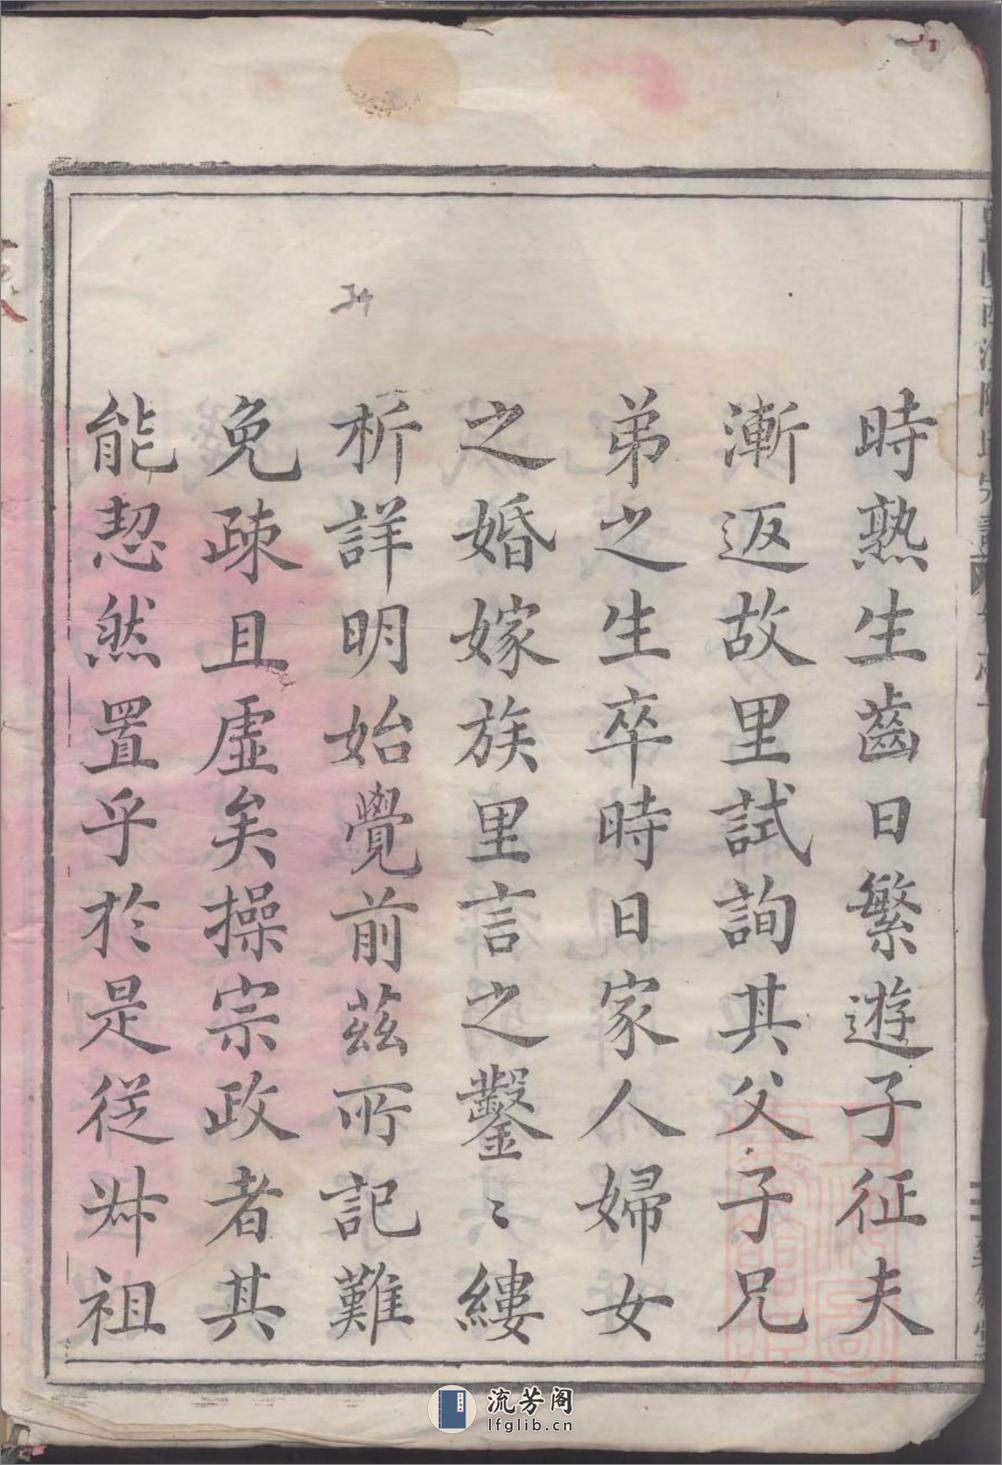 時熟生齒日繁遊子征夫
漸返故里試詢其父子兄
弟之生卒時日家人婦女
之婚嫁族里言之鑿〻縷
析詳明始覺前茲所記難
免疎且虛矣操宗政者其
能恝然置乎於是從叔祖
流芳阁
lfglib.cn